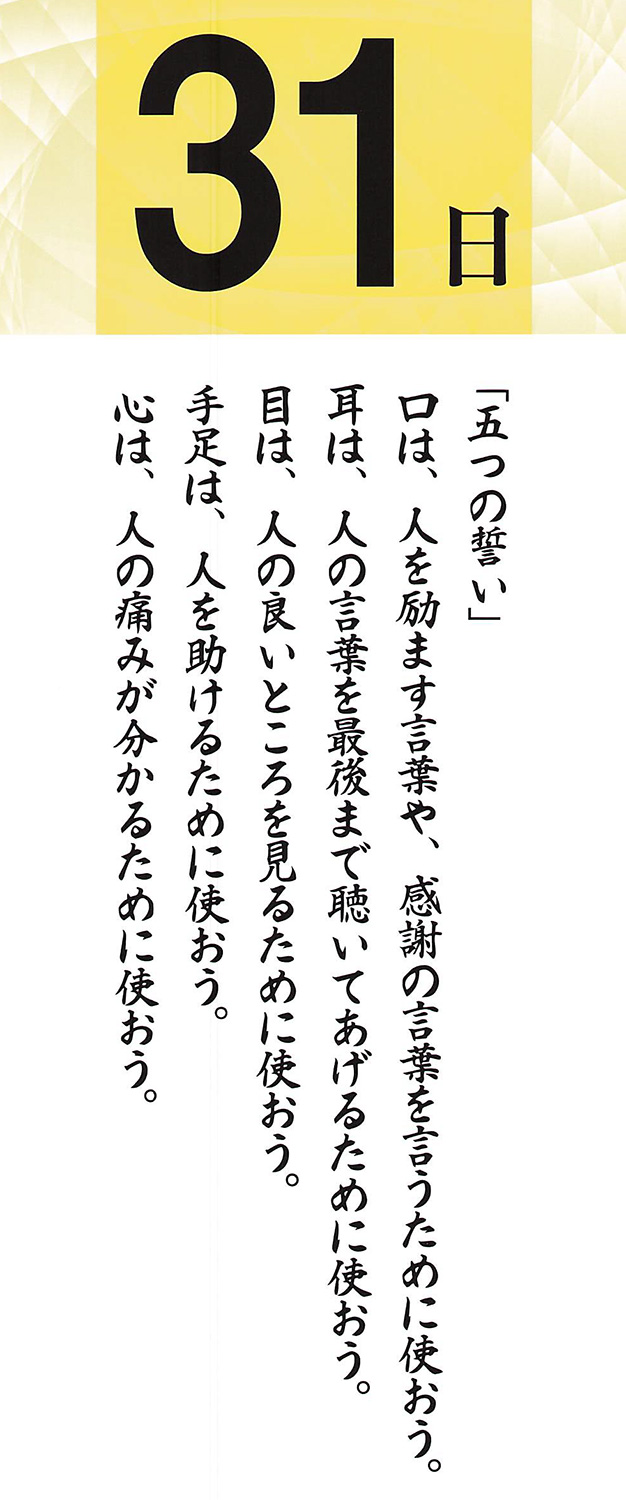 31日
「五つの誓い」
口は、人を励ます言葉や、感謝の言葉を言うために使おう。
耳は、人の言葉を最後まで聴いてあげるために使おう。
目は、人の良いところを見るために使おう。
手足は、人を助けるために使おう。
心は、人の痛みが分かるために使おう。